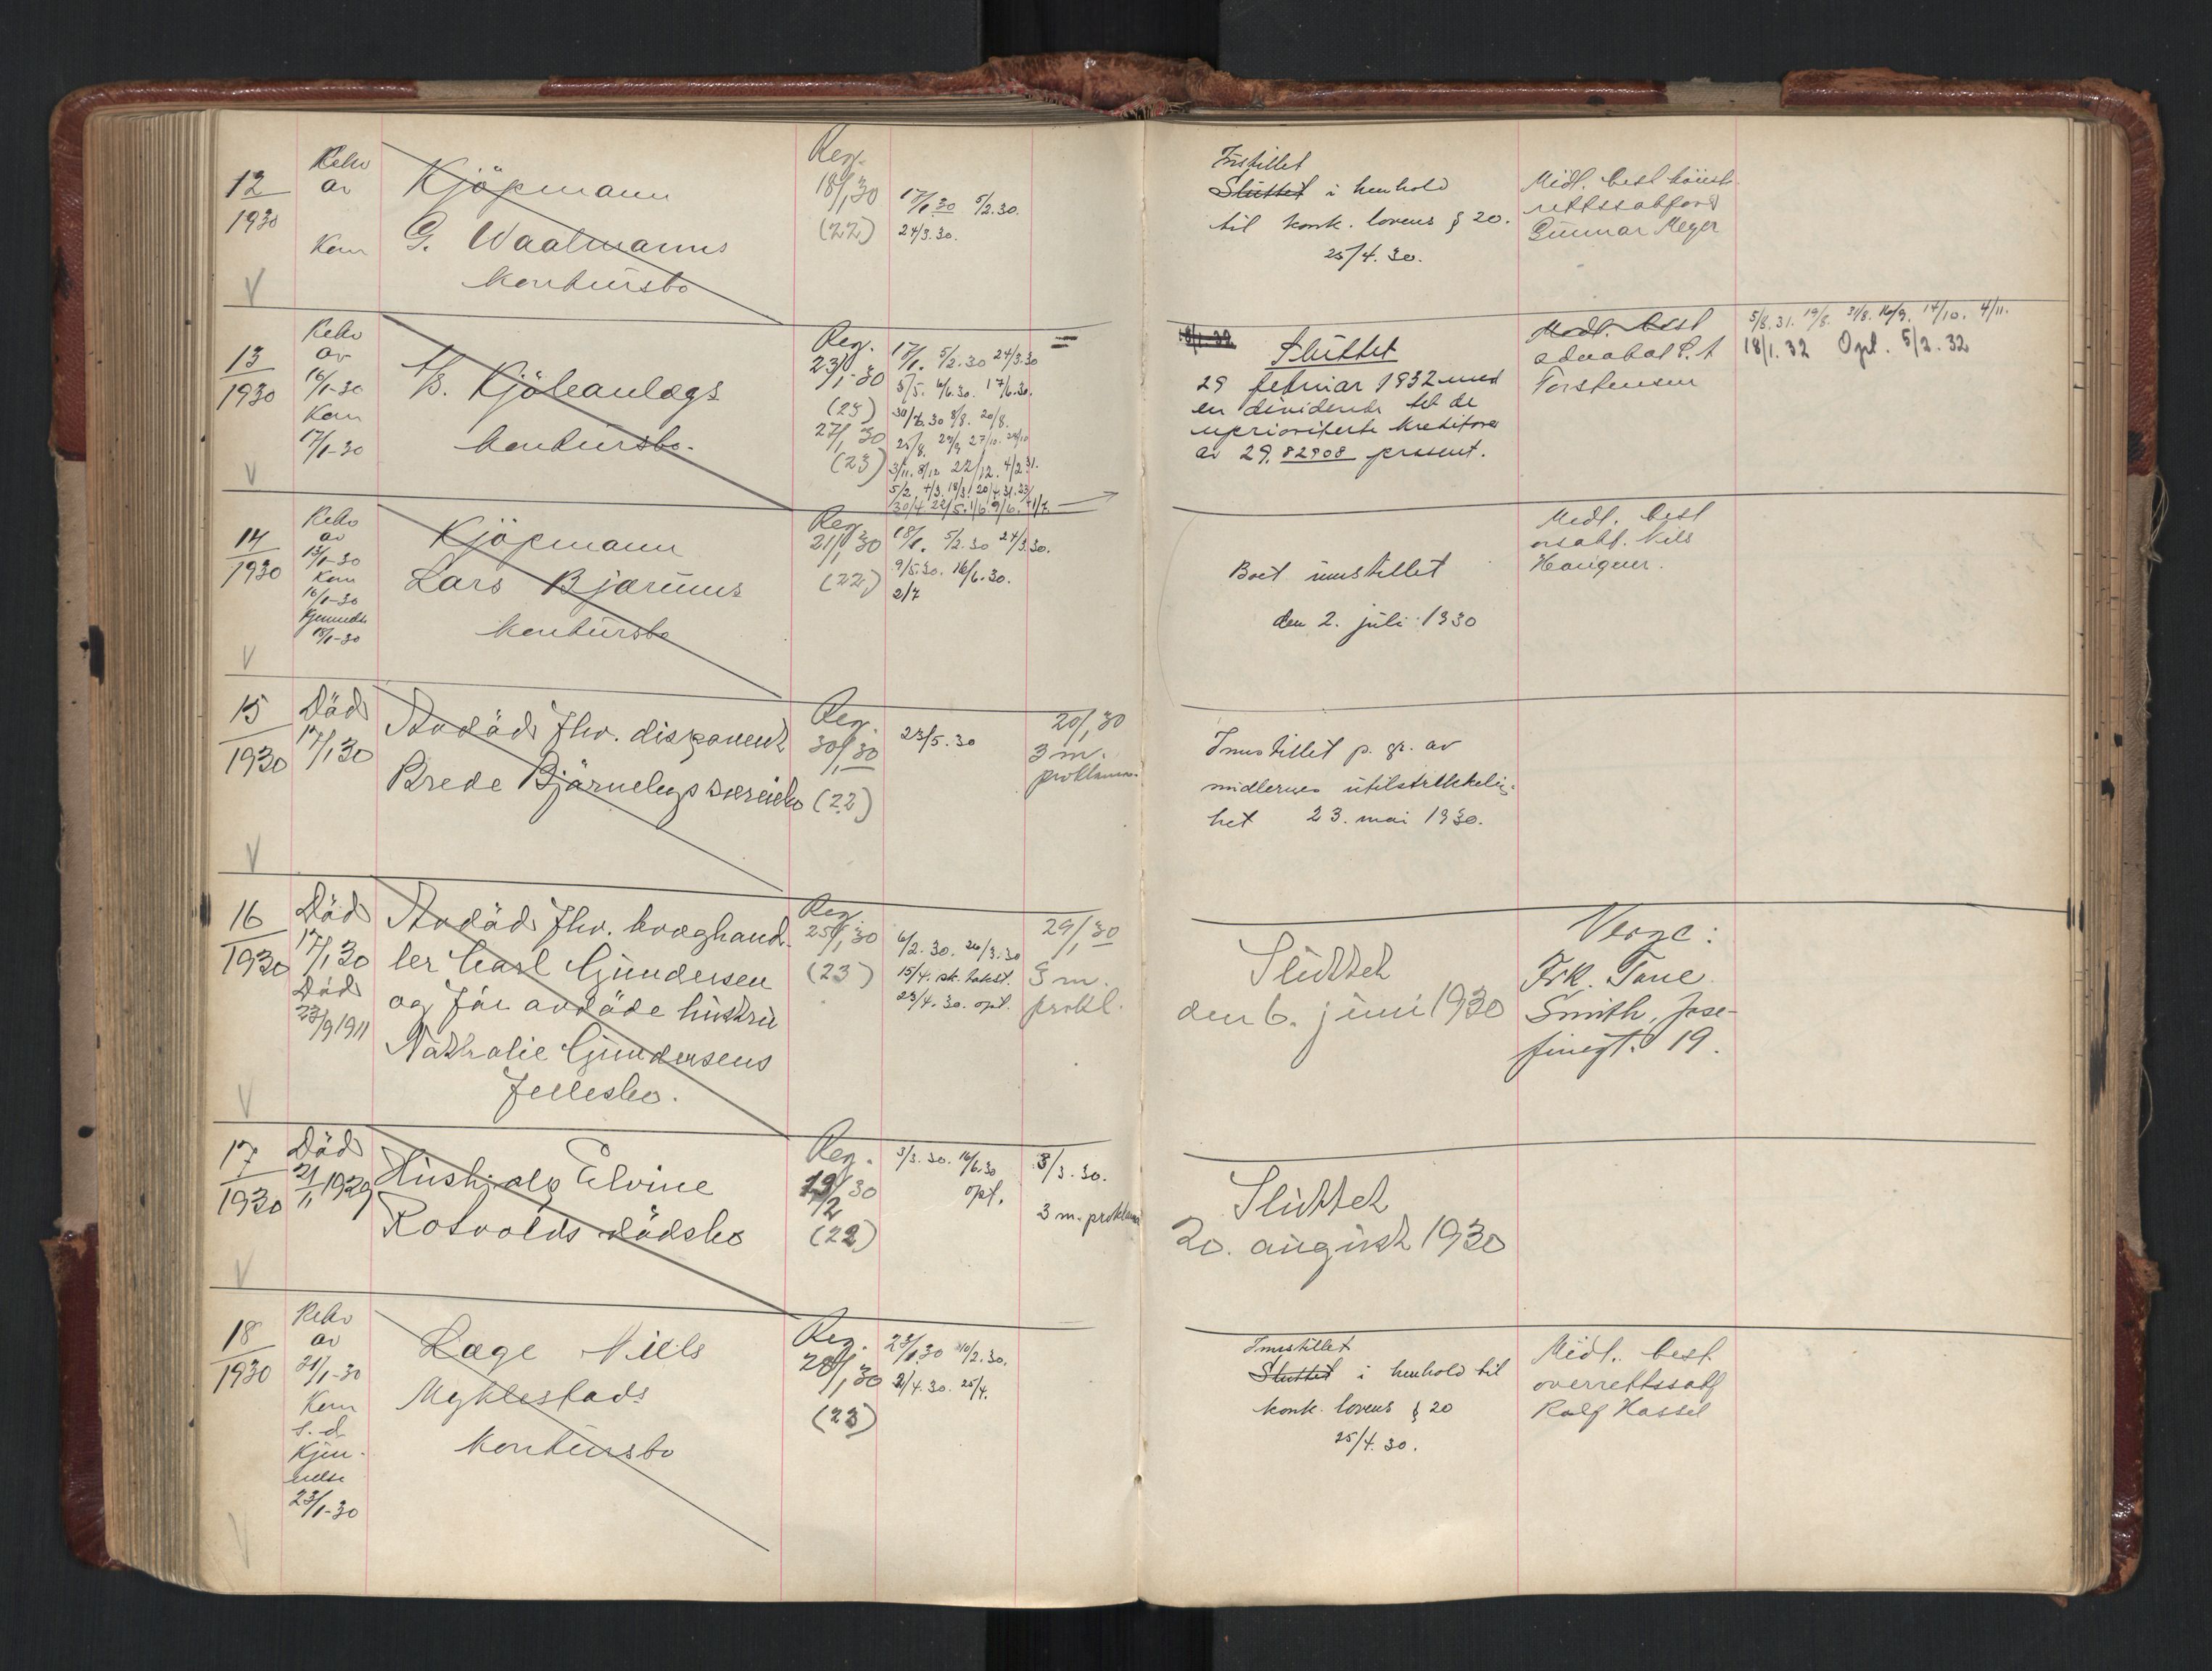 12
1930
Rekv
av
Kom
Kjöpmann
G. Waalmanns
konkursbo
Reg.
18/1 30
(22)
17/1.30 5/2.30.
24/3.30.
Slüttet i henhold
til konk. lovens § 20.
25/4. 30.
Midl. best höieste-
rettssakförer
Gunnar Meyer
13
1930
Rekv
av
16/1-30
Kom
17/1-30
A/S. Kjöleanlægs
konkursbo.
Reg.
23/1-30
(23)
27/1 30
(23)
17/1. 5/2.30 24/3.30
5/5. 6/6.30. 17/6.30.
30/6.30 8/8. 20/8.
3/11. 8/12 22/12. 4/2 31.
Slüttet
29 februar 1932 med
en dividende til de
uprioriterte kreditorer
av 29,82908 prosent.
Midl. best
advokat P. A
Torstensen
5/8.31. 19/8. 31/8. 16/9. 14/10. 4/11.
18/1.32 Opl. 5/2.32
14
1930
Rekv
av
13/1-30
Kom
16/1-30
Kjennelse
18/1-30
Kjöpmann
Lars Bjarüms
konkursbo
Reg.
21/1 30
(22)
18/1. 5/2.30 24/3.30.
9/5.30. 16/6.30.
2/7
Boet innstillet
den 2. juli 1930
Midl. best
orsakf. Nils
Haugner.
15
1930
Död
17/1 30
Avdöd fhv. disponent
Brede Bjärnelys særeiebo
Reg.
30/1 30
(22)
23/5.30
20/1 30
3 m.
proklama
Innstillet p. gr. av
midlernes utilstrekkelig-
het 23. mai 1930.
16
1930
Död
17/1 30
Död
23/9 1911
Avdöd fhv. kræghand-
ler Carl Gundersen
og för avdöde hustru
Nathalie Gundersens
fellesbo.
Reg.
25/1 30
(23)
6/2.30. 26/3.30
15/4. sk. takst.
23/4.30. opl.
29/1 30
3 m.
prokl.
Slüttet
den 6. juni 1930
Verge:
Frk. Tane
Smith, Jose-
finegt. 19.
17
1930
Död
21/11 1929
Hushj. slg Elvine
Rotvolds dödsbo
Reg.
19/2 30
(22)
3/3.30. 16/6.30
opl.
3/3.30.
3 m. proklama
Slüttet
20. august 1930
18
1930
Rekv
av
21/1-30
Kom
s.d.
Kjen-
nelse
23/1-30
Læge Niels
Myklestads
konkursbo
Reg.
28/1 30
(23)
23/1.30 10/2.30.
2/4.30. 25/4.
Innstillet
Slüttet i henhold til
konk. lovens § 20
25/4.30.
Midl. best.
overrettssakf
Rolf Hassel